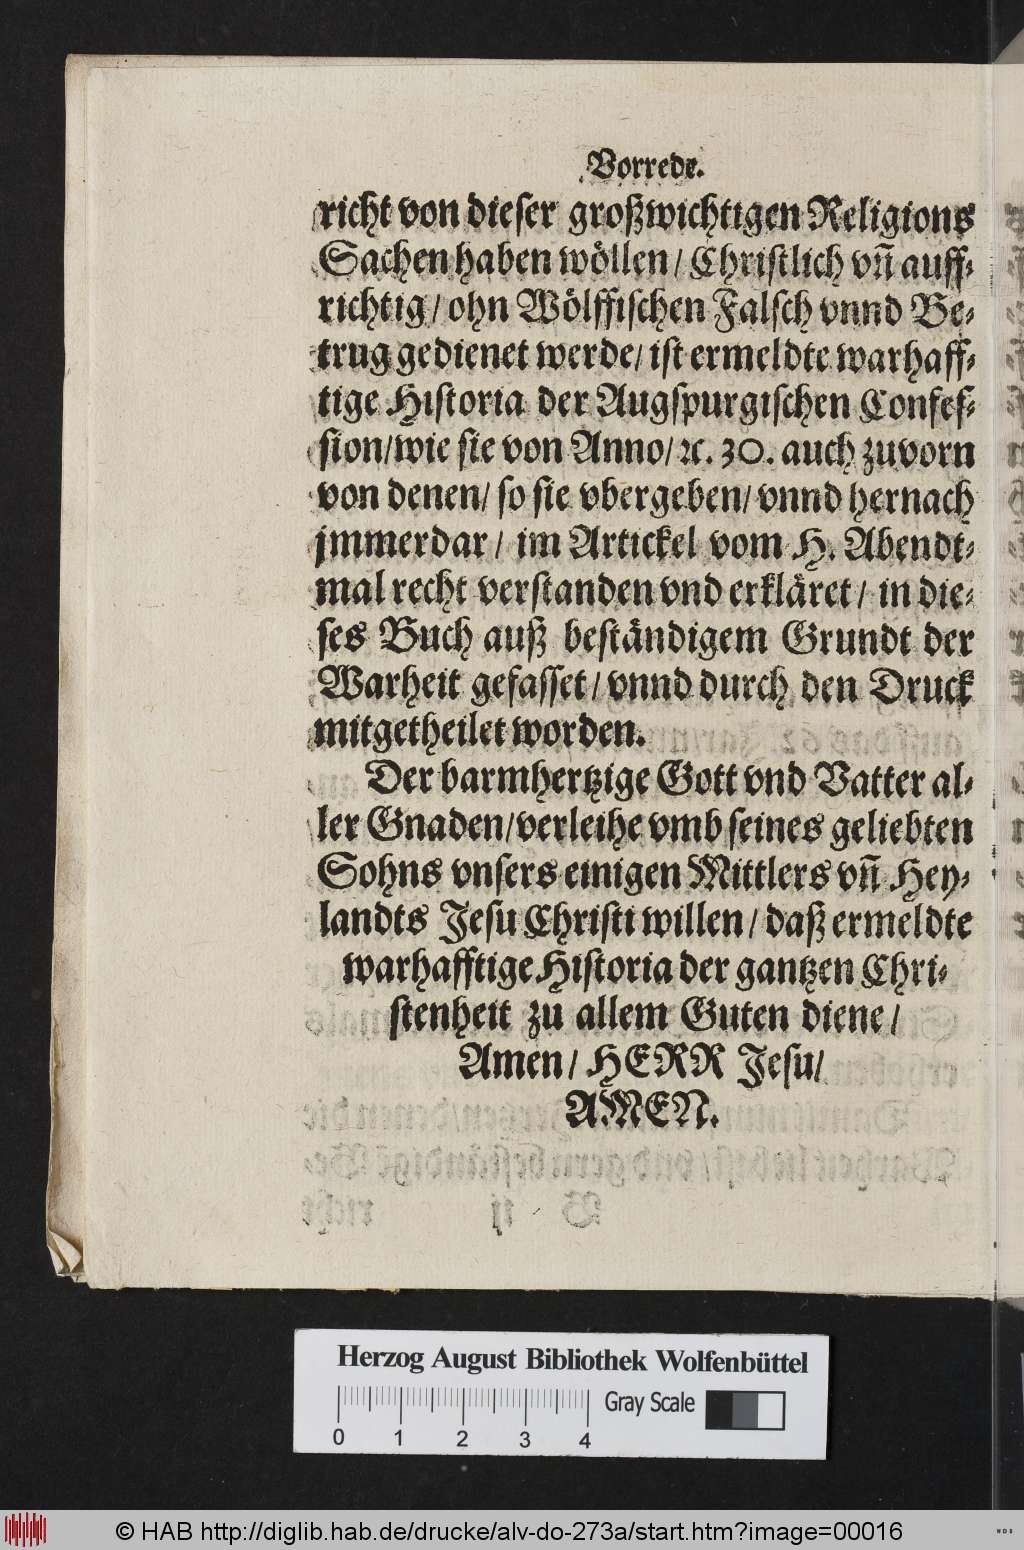 Vorrede.
richt von dieser großwichtigen Religions
Sachen haben wöllen / Christlich vn̄ auff⸗
richtig / ohn Wölffischen Falsch vnnd Be⸗
trug gedienet werde / ist ermeldte warhaff⸗
tige Historia der Augspurgischen Confes⸗
sion / wie sie von Anno / ꝛc. 30. auch zuvorn
von denen / so sie vbergeben / vnnd hernach
jmmerdar / im Artickel vom H. Abendt⸗
mal recht verstanden vnd erkläret / in die⸗
ses Buch auß beständigem Grundt der
Warheit gefasset / vnnd durch den Druck
mitgetheilet worden.
Der barmhertzige Gott vnd Vatter al⸗
ler Gnaden / verleihe vmb seines geliebten
Sohns vnsers einigen Mittlers vn̄ Hey⸗
landts Jesu Christi willen / daß ermeldte
warhafftige Historia der gantzen Chri⸗
stenheit zu allem Guten diene /
Amen / HERR Jesu /
AMEN.
Herzog August Bibliothek Wolfenbüttel
Gray Scale
0 1 2 3 4
© HAB http://diglib.hab.de/drucke/alv-do-273a/start.htm?image=00016